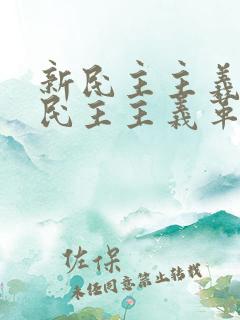 新民主主義
民主主義革
佐保
未经同意禁止转载